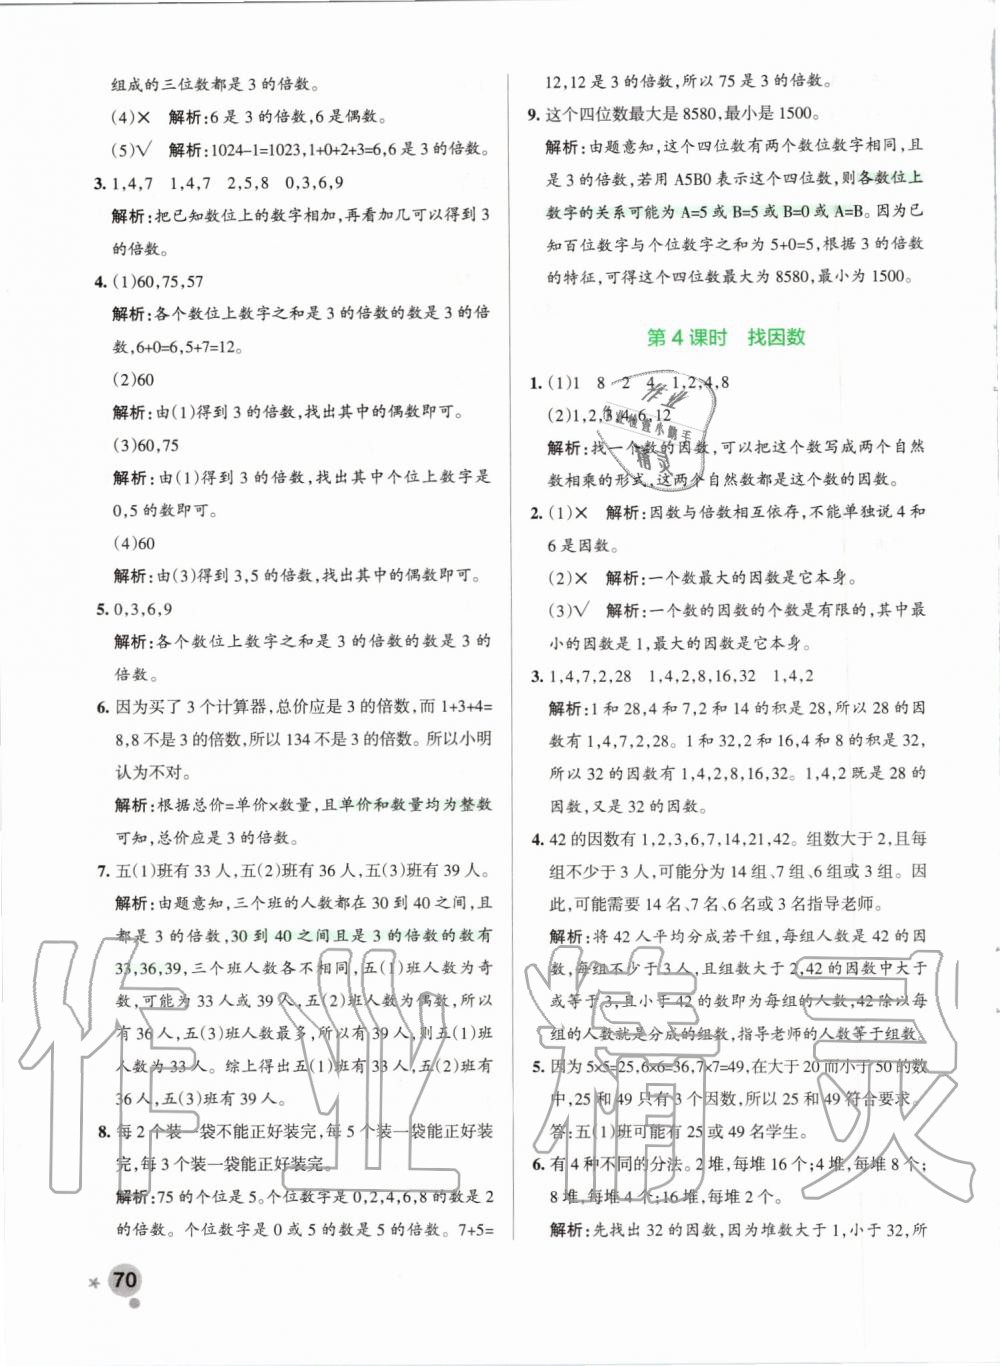 组成的三位数都是 3 的倍数。
(4)× 解析:6 是 3 的倍数,6 是偶数。
(5)√ 解析:1024-1=1023,1+0+2+3=6,6 是 3 的倍数。
3. 1,4,7 1,4,7 2,5,8 0,3,6,9
解析:把已知数位上的数字相加,再看加几可以得到 3
的倍数。
4. (1)60,75,57
解析:各个数位上数字之和是 3 的倍数的数是 3 的倍
数,6+0=6,5+7=12。
(2)60
解析:由(1)得到 3 的倍数,找出其中的偶数即可。
(3)60,75
解析:由(1)得到 3 的倍数,找出其中个位上数字是
0,5 的数即可。
(4)60
解析:由(3)得到 3,5 的倍数,找出其中的偶数即可。
5. 0,3,6,9
解析:各个数位上数字之和是 3 的倍数的数是 3 的
倍数。
6. 因为买了 3 个计算器,总价应是 3 的倍数,而 1+3+4=
8,8 不是 3 的倍数,所以 134 不是 3 的倍数。所以小明
认为不对。
解析:根据总价=单价×数量,且单价和数量均为整数
可知,总价应是 3 的倍数。
7. 五(1)班有 33 人,五(2)班有 36 人,五(3)班有 39 人。
解析:由题意知,三个班的人数都在 30 到 40 之间,且
都是 3 的倍数,30 到 40 之间且是 3 的倍数的数有
33,36,39,三个班人数各不相同,五(1)班人数为奇
数,可能为 33 人或 39 人,五(2)班人数为偶数,所以
有 36 人,五(3)班人数最多,所以有 39 人,则五(1)班
人数为 33 人。综上得出五(1)班有 33 人,五(2)班有
36 人,五(3)班有 39 人。
8. 每 2 个装一袋不能正好装完,每 5 个装一袋能正好装
完,每 3 个装一袋能正好装完。
解析:75 的个位是 5。个位数字是 0,2,4,6,8 的数是 2
的倍数。个位数字是 0 或 5 的数是 5 的倍数。7+5=
70
12,12 是 3 的倍数,所以 75 是 3 的倍数。
9. 这个四位数最大是 8580,最小是 1500。
解析:由题意知,这个四位数有两个数位数字相同,且
是 3 的倍数,若用 A5B0 表示这个四位数,则各数位上
数字的关系可能为 A=5 或 B=5 或 B=0 或 A=B。因为已
知百位数字与个位数字之和为 5+0=5,根据 3 的倍数
的特征,可得这个四位数最大为 8580,最小为 1500。
第 4 课时 找因数
1. (1)1 8 2 4 1,2,4,8
(2)1,2,3,4,6,12
解析:找一个数的因数,可以把这个数写成两个自然
数相乘的形式,这两个自然数都是这个数的因数。
2. (1)× 解析:因数与倍数相互依存,不能单独说 4 和
6 是因数。
(2)× 解析:一个数最大的因数是它本身。
(3)√ 解析:一个数的因数的个数是有限的,其中最
小的因数是 1,最大的因数是它本身。
3. 1,4,7,2,28 1,4,2,8,16,32 1,4,2
解析:1 和 28,4 和 7,2 和 14 的积是 28,所以 28 的因
数有 1,4,7,2,28。1 和 32,2 和 16,4 和 8 的积是 32,
所以 32 的因数有 1,4,2,8,16,32。1,4,2 既是 28 的
因数,又是 32 的因数。
4. 42 的因数有 1,2,3,6,7,14,21,42。组数大于 2,且每
组不少于 3 人,可能分为 14 组、7 组、6 组或 3 组。因
此,可能需要 14 名、7 名、6 名或 3 名指导老师。
解析:将 42 人平均分成若干组,每组人数是 42 的因
数,每组不少于 3 人,且组数大于 2,42 的因数中大于
或等于 3,且不是 42 的数即为每组的人数,42 除以每
组的人数就是分成的组数,指导老师的人数等于组数。
5. 因为 5×5=25,6×6=36,7×7=49,在大于 20 而小于 50 的数
中,25 和 49 只有 3 个因数,所以 25 和 49 符合要求。
答:五(1)班可能有 25 或 49 名学生。
6. 有 4 种不同的分法。2 堆,每堆 16 个;4 堆,每堆 8 个;
8 堆,每堆 4 个;16 堆,每堆 2 个。
解析:先找出 32 的因数,因为堆数大于 1,小于 32,所
作业精灵
作业
作业检查小帮手
精灵